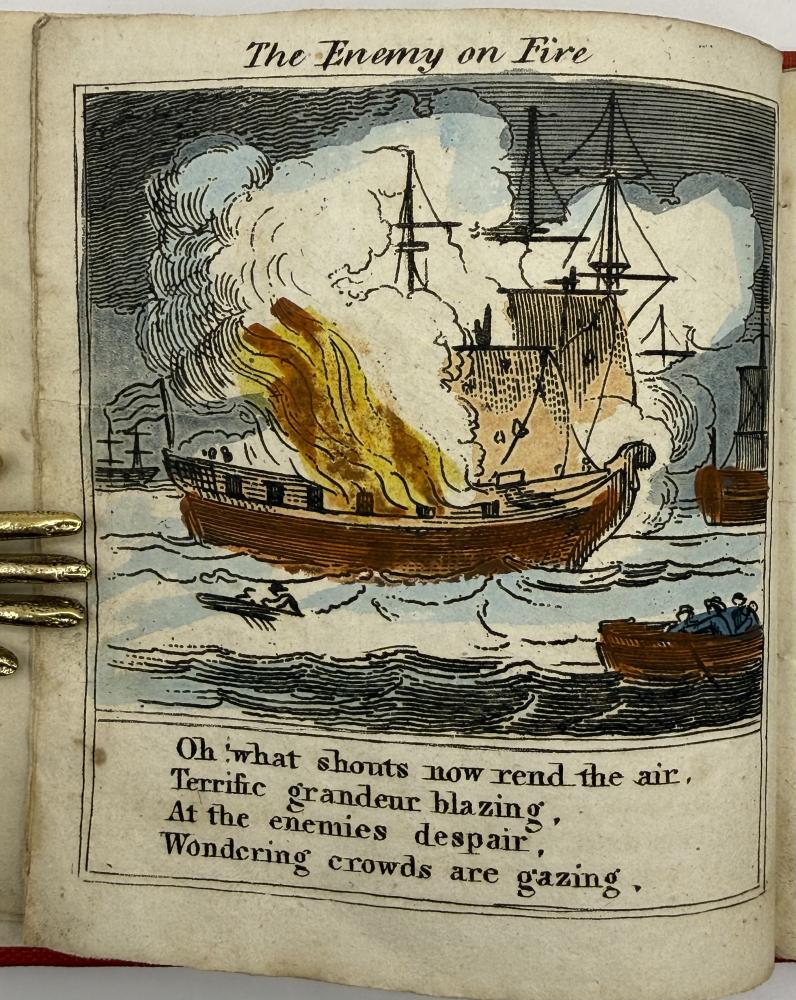 The Enemy on Fire
Oh what shouts now rend the air,
Terrific grandeur blazing,
At the enemies despair,
Wondering crowds are gazing,